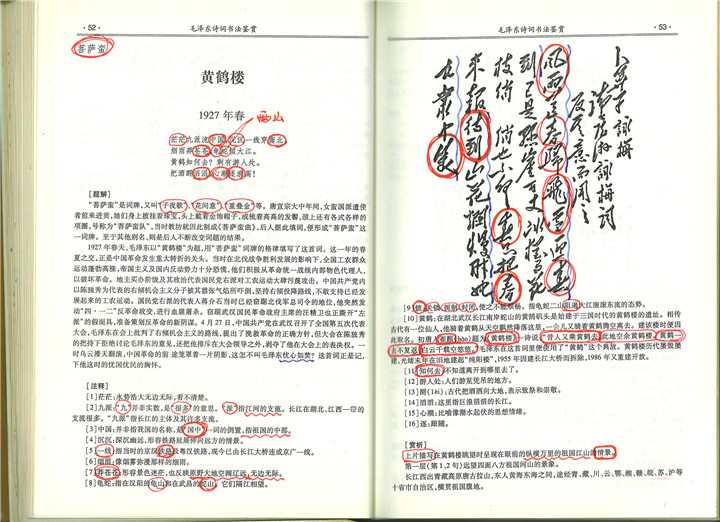 · 52 ·
毛泽东诗词书法鉴赏
菩萨蛮
黄鹤楼
1927 年春
茫茫九派流中国，沉沉一线穿南北。
烟雨莽苍苍，龟蛇锁大江。
黄鹤知何去？剩有游人处。
把酒酹滔滔，心潮逐浪高！
[题解]
“菩萨蛮”是词牌，又叫“子夜歌”、“花间意”、“重叠金”等。唐宣宗大中年间，女蛮国派遣使
者前来进贡，她们身上披挂着珠宝，头上戴着金饰帽子，或梳着高高的发髻，头上还有各式各样的
项圈，号称为“菩萨蛮队”，当时教坊就因此制成《菩萨蛮曲》，后人据此填词，便形成“菩萨蛮”这
一词牌。至于其他别名，则是后人不断改变词题的结果。
1927 年春天，毛泽东以“黄鹤楼”为题，用“菩萨蛮”词牌的格律填写了这首词。这一年的春
夏之交，正是中国革命发生重大转折的关头。当时在北伐战争胜利发展的影响下，全国工农群众
运动蓬勃高涨，帝国主义及国内反动势力十分恐慌，他们积极从革命统一战线内部物色代理人，
以破坏革命。地主买办阶级及其政治代表国民党右派对工农运动大肆污蔑攻击。中国共产党
内以陈独秀为代表的右倾机会主义分子被其嚣张气焰所吓倒，坚持右倾投降路线，不敢支持已经发
展起来的工农运动。国民党右派的代表人蒋介石当时已经窃踞北伐军总司令的地位，他突然发
动“四·一二”反革命政变，进行血腥屠杀。窃踞武汉国民革命政府主席的汪精卫也正撕开“左
派”的假面具，准备策划反革命的新阴谋。4 月 27 日，中国共产党在武汉召开了全国第五次代表
大会，毛泽东在会上批判了右倾机会主义的路线，提出了挽救革命的正确方针，但大会在陈独秀
的把持下拒绝讨论毛泽东的意见，还把他排斥在大会领导之外，剥夺了他在大会上的表决权。一
时乌云漫天翻滚，中国革命的前途笼罩着一片阴影，这怎不叫毛泽东忧心如焚？这首词正是记
下他这时的忧国忧民的胸怀。
[注释]
[1]茫茫：水势浩大无边无际，看不清楚。
[2]九派：“九”并非实数，是“很多”的意思。“派”指江河的支流。长江在湖北、江西一带的
支流很多。“九派”指长江的主体及其许多支流。
[3]中国：并非指我国的名称，是“国中”一词的倒置，指祖国的中部。
[4]沉沉：深沉幽远，形容铁路延展伸向远方的情景。
[5]一线：指当时的京汉铁路及粤汉铁路，现今已由长江大桥连成京广一线。
[6]烟雨：像烟雾弥漫那样的细雨。
[7]莽苍苍：形容景色迷茫，也反映原野大地空阔辽远，无边无际。
[8]龟蛇：指在汉阳的龟山和在武昌的蛇山，它们隔江相望。
毛泽东诗词书法鉴赏
· 53 ·
卜算子 咏梅
读陆游咏梅词
反其意而用之
风雨送春归 飞雪迎春
到 已是悬崖百丈冰 犹有花
枝俏 俏也不争春 只把春
来报 待到山花烂漫时 她
在丛中笑
[9]锁：关锁，扼制，封闭，使之不能联畅。指龟蛇二山锁住大江滚滚东流的态势。
[10]黄鹤：在湖北武汉长江南岸蛇山的黄鹄矶头是始建于三国时代的黄鹤楼的遗址。相传
古代有一位仙人，他骑着黄鹤从天空飘然降落这里，一会儿又骑着黄鹤腾空离去。建筑楼时便因
此取名。初唐人崔颢(hào)题为《黄鹤楼》一诗说：“昔人又乘黄鹤去，此地空余黄鹤楼。黄鹤一
去不复返，白云千载空悠悠。”毛泽东在这首词里便使用了“黄鹤”这个典故。黄鹤楼历代屡毁屡
建，光绪末年在旧地建起“纯阳楼”，1955 年因建长江大桥而拆除，1986 年又重建开放。
[11]知何去：不知道离开到哪里去了。
[12]游人处：人们游览凭吊的地方。
[13]酹(lèi)：古代把酒洒向大地，表示致祭和崇敬。
[14]滔滔：这里指巨浪滔滔的长江。
[15]心潮：比喻像潮水起伏的思想情绪。
[16]逐：跟随。
[赏析]
上片描写在黄鹤楼眺望时呈现在眼前的纵横万里的祖国江山的情景。
第一层(第 1、2 句)远望四面八方祖国河山的景象。
长江西出青藏高原唐古拉山，东入黄海东海之间，途经青、藏、川、云、鄂、湘、赣、皖、苏、沪等
十省市自治区，横贯祖国腹地。